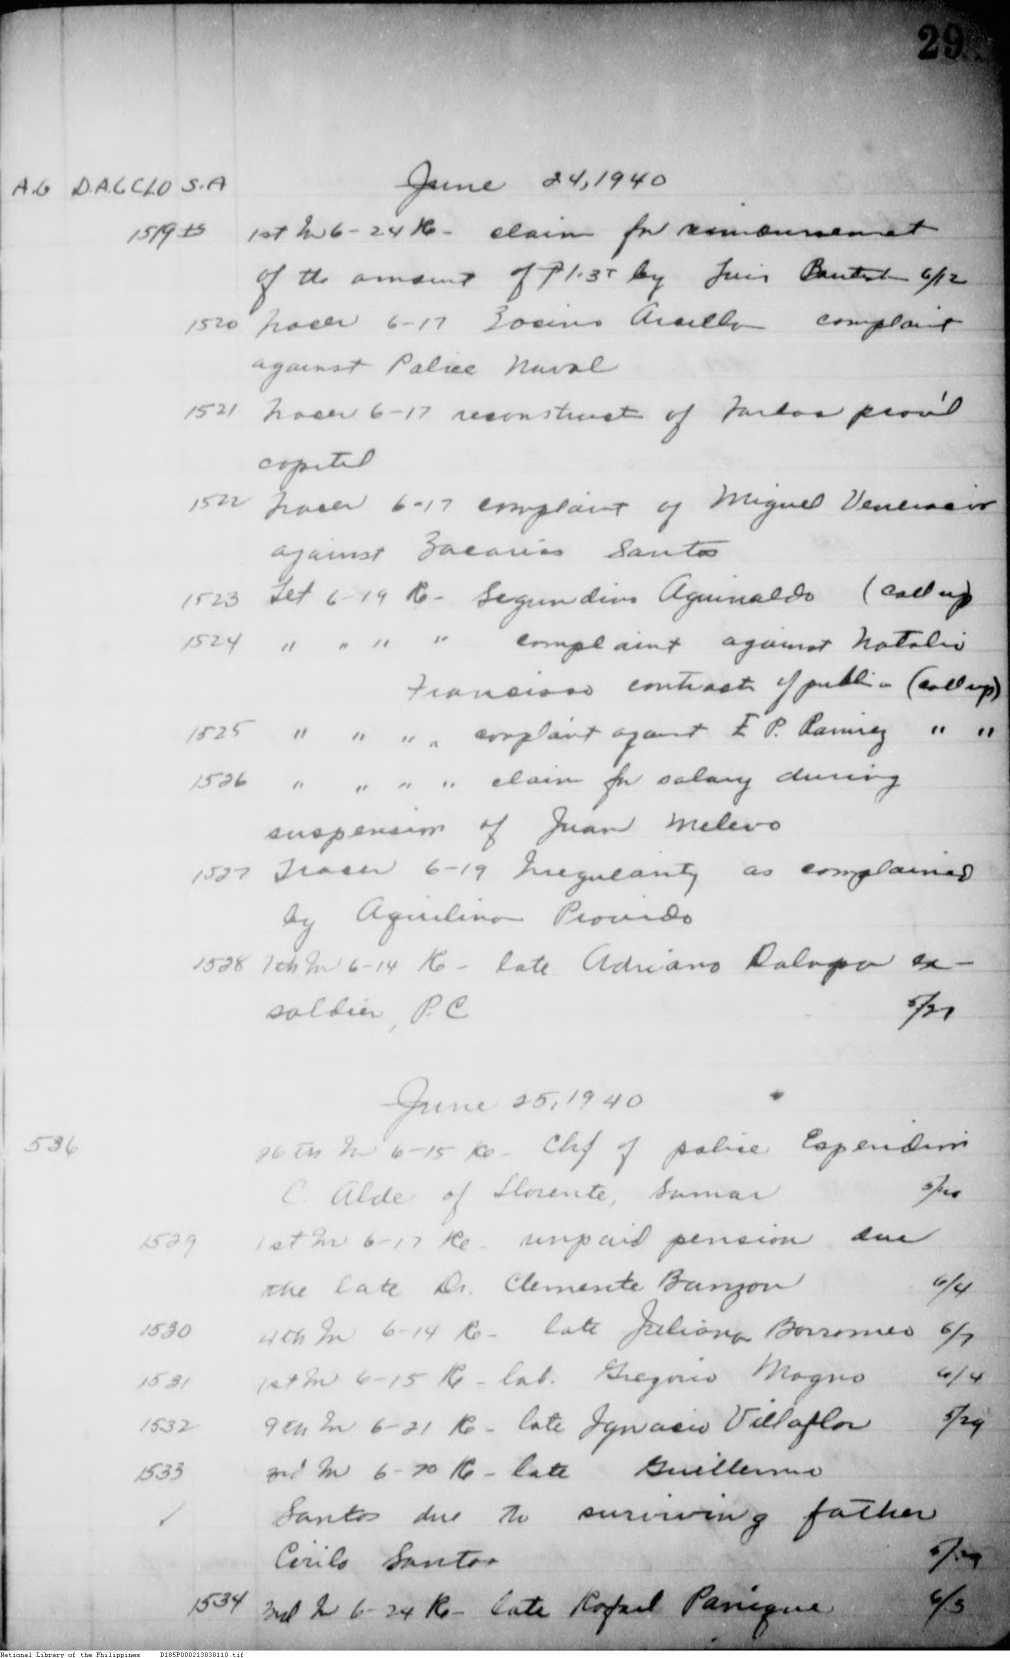 29
A.G D.A.G CLO S.A June 24, 1940
1519 1st In 6-24 Re- claim for reimbursement
of the amount of ₱1.35 by Luis Bautista 6/12
1520 Tracer 6-17 Zosimo Arcilla complaint
against Police Naval
1521 Tracer 6-17 reconstruct of Tarlac prov'l
capitol
1522 Tracer 6-17 complaint of Miguel Venancio
against Zacarias Santos
1523 Let 6-19 Re- Segundino Aguinaldo (call up)
1524 " " " " complaint against Natalio
Francisco contract of public (call up)
1525 " " " " complaint against E P. Ramirez " "
1526 " " " " claim for salary during
suspension of Juan Melevo
1527 Tracer 6-19 Irregularity as complained
by Aquilino Provido
1528 7th In 6-14 Re- late Adriano Dalopo ex-
soldier, P.C 5/27
June 25, 1940
536 26th In 6-15 Re- Chf of police Esperidion
C. Alde of Llorente, Samar
1529 1st In 6-17 Re- unpaid pension due
the late Dr. Clemente Banzon 6/4
1530 4th In 6-14 Re- late Juliana Borromeo 6/7
1531 1st In 6-15 Re- lab. Gregorio Magno 6/4
1532 9th In 6-21 Re- late Ignacio Villaflor 5/29
1533 3rd In 6-20 Re- late Guillermo
Santos due to surviving father
Cirilo Santos 5/29
1534 3rd In 6-24 Re- late Rafael Panique 6/3
National Library of the Philippines D185P000213838110.tif